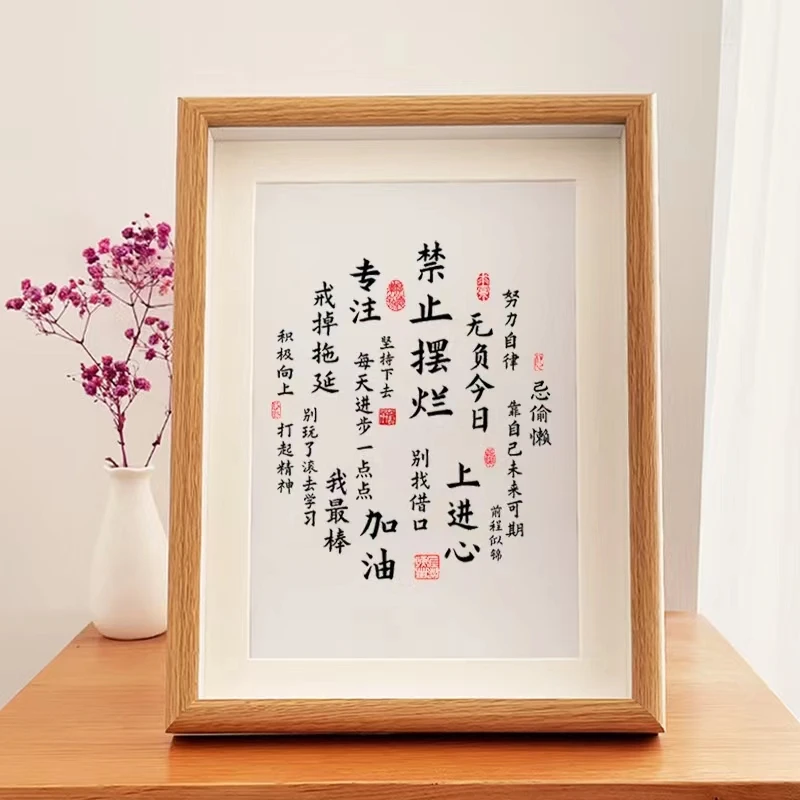 忌偷懒
努力自律
靠自己未来可期
前程似锦
无负今日
上进心
禁止摆烂
别找借口
坚持下去
专注
每天进步一点点
加油
戒掉拖延
我最棒
别玩了滚去学习
积极向上
打起精神